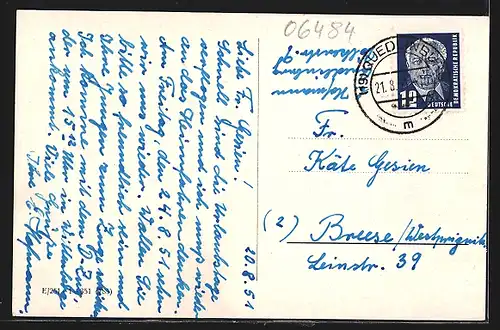 06484
20.8.51
Liebe Fr. Gesien!
Schnell sind die Urlaubstage
verflogen und ich muß wieder
an das Heimfahren denken.
Am Freitag, d. 24.8.51 fahre
ich wieder. Wollen Sie
bitte so freundlich sein und
Ihre Jungen zum Zuge schicken.
Ich komme mit dem D-Zug,
der um 15 Uhr in Wittenberge
ankommt. Viele Grüße
Ihre Hofmann.
Hofmann
Quedlinburg
(19b) QUEDLINBURG
21.8.
m
12
DEUTSCHE
DEMOKRATISCHE REPUBLIK
Fr.
Käte Gesien
(2) Breese/Westprignitz
Leinstr. 39